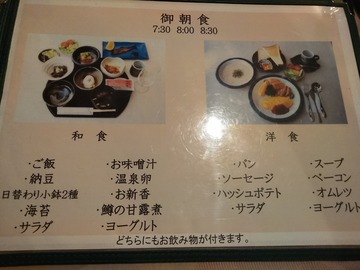 御朝食
7:30 8:00 8:30
和食
・ご飯
・納豆
日替わり小鉢2種
・海苔
・サラダ
・お味噌汁
・温泉卵
・お新香
・鱒の甘露煮
・ヨーグルト
洋食
・パン
・ソーセージ
・ハッシュポテト
・サラダ
・スープ
・ベーコン
・オムレツ
・ヨーグルト
どちらにもお飲み物が付きます。